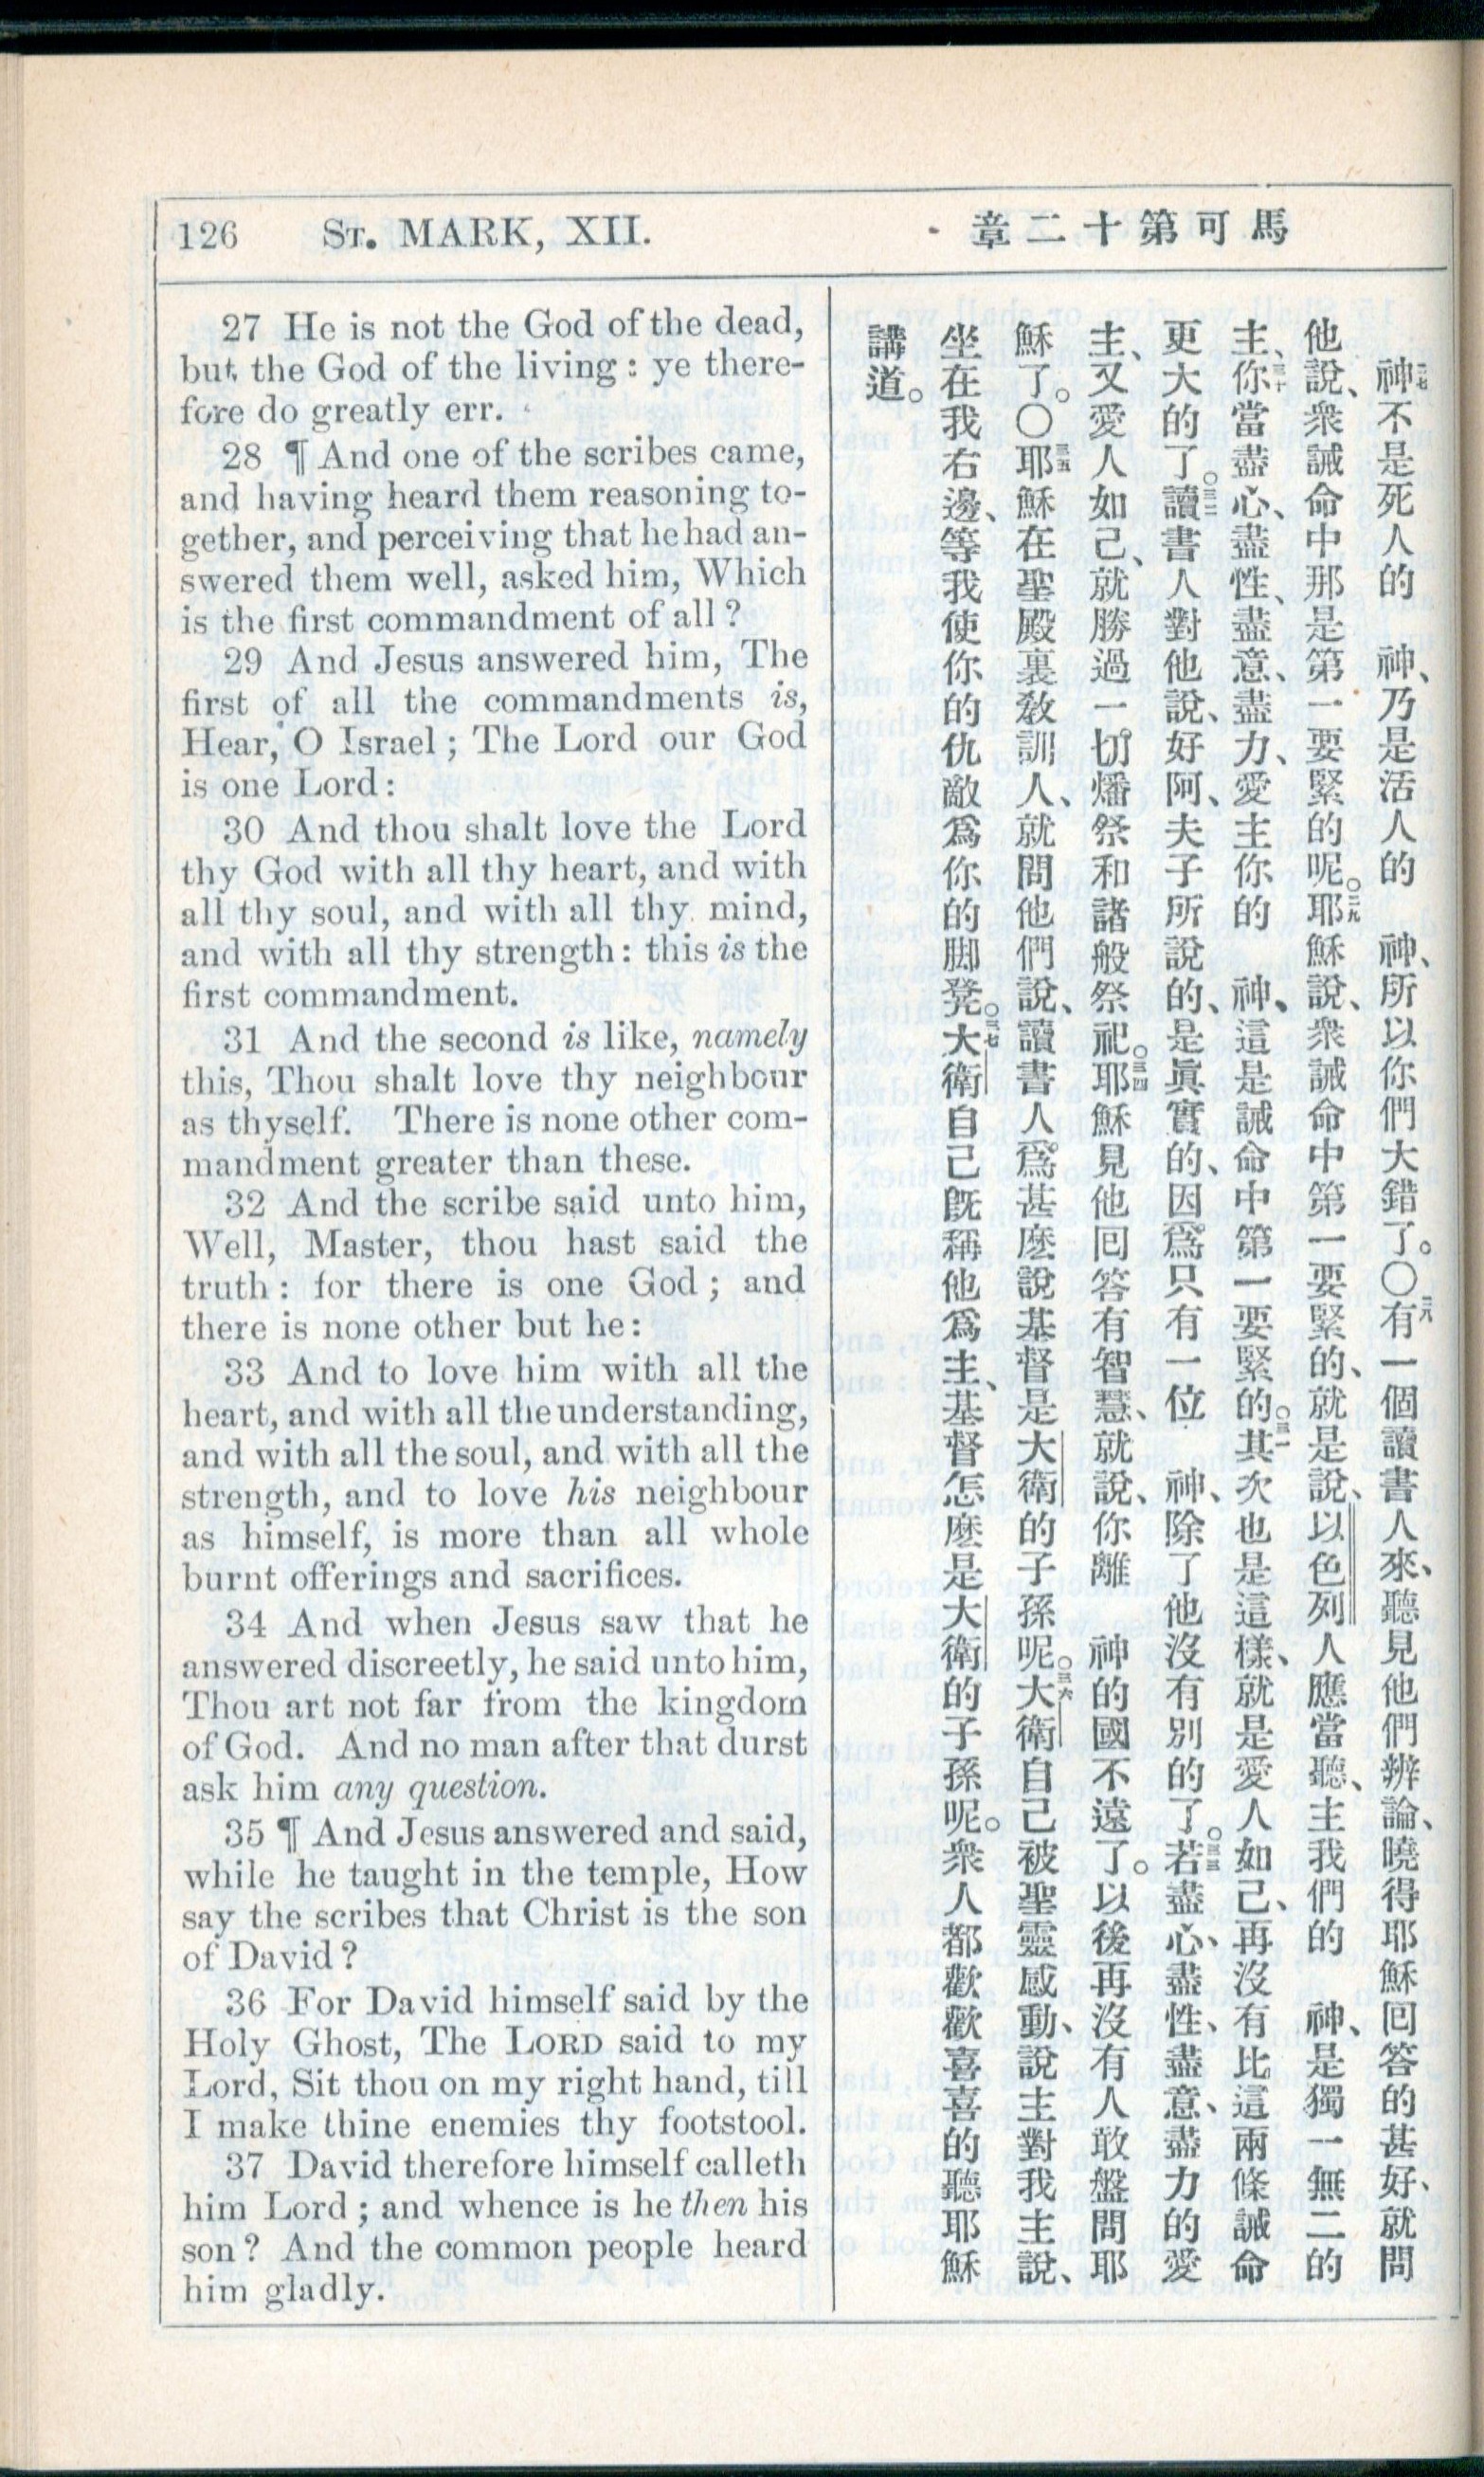 126 ST. MARK, XII.
章二十第可馬
27 He is not the God of the dead,
but the God of the living : ye there-
fore do greatly err.
28 ¶ And one of the scribes came,
and having heard them reasoning to-
gether, and perceiving that he had an-
swered them well, asked him, Which
is the first commandment of all ?
29 And Jesus answered him, The
first of all the commandments is,
Hear, O Israel ; The Lord our God
is one Lord :
30 And thou shalt love the Lord
thy God with all thy heart, and with
all thy soul, and with all thy mind,
and with all thy strength : this is the
first commandment.
31 And the second is like, namely
this, Thou shalt love thy neighbour
as thyself. There is none other com-
mandment greater than these.
32 And the scribe said unto him,
Well, Master, thou hast said the
truth : for there is one God ; and
there is none other but he :
33 And to love him with all the
heart, and with all the understanding,
and with all the soul, and with all the
strength, and to love his neighbour
as himself, is more than all whole
burnt offerings and sacrifices.
34 And when Jesus saw that he
answered discreetly, he said unto him,
Thou art not far from the kingdom
of God. And no man after that durst
ask him any question.
35 ¶ And Jesus answered and said,
while he taught in the temple, How
say the scribes that Christ is the son
of David ?
36 For David himself said by the
Holy Ghost, The LORD said to my
Lord, Sit thou on my right hand, till
I make thine enemies thy footstool.
37 David therefore himself calleth
him Lord ; and whence is he then his
son ? And the common people heard
him gladly.
二七神不是死人的　神、乃是活人的　神、所以你們大錯了。〇二八有一個讀書人來、聽見他們辨論、曉得耶穌回答的甚好、就問
他說、衆誡命中那是第一要緊的呢。二九耶穌說、衆誡命中第一要緊的、就是說、以色列人應當聽、主我們的　神、是獨一無二的
主、三十你當盡心、盡性、盡意、盡力、愛主你的　神、這是誡命中第一要緊的。三一其次也是這樣、就是愛人如己、再沒有比這兩條誡命
更大的了。三二讀書人對他說、好阿、夫子所說的、是眞實的、因爲只有一位　神、除了他沒有別的了。三三若盡心、盡性、盡意、盡力的愛
主、又愛人如己、就勝過一切燔祭和諸般祭祀。三四耶穌見他回答有智慧、就說、你離　神的國不遠了。以後再沒有人敢盤問耶
穌了。〇三五耶穌在聖殿裏敎訓人、就問他們說、讀書人爲甚麽說基督是大衛的子孫呢。三六大衛自己被聖靈感動、說主對我主說、
坐在我右邊、等我使你的仇敵爲你的脚凳。三七大衛自己旣稱他爲主、基督怎麽是大衛的子孫呢。衆人都歡歡喜喜的聽耶穌
講道。